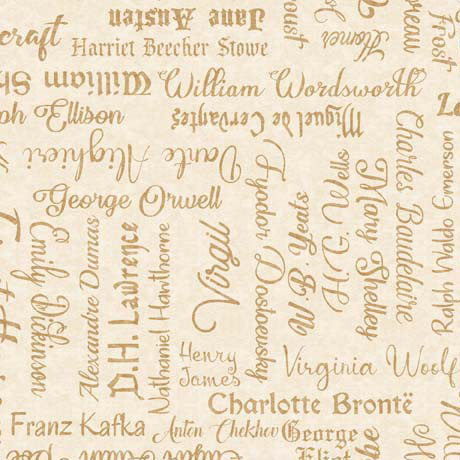 craft
Jane Austen
Harriet Beecher Stowe
Homer
Frost
William
William Wordsworth
Ellison
Miguel de Cervantes
Dante Alighieri
George Orwell
Charles Baudelaire
Ralph Waldo Emmerson
Emily Dickinson
Alexandre Dumas
D.H. Lawrence
Nathaniel Hawthorne
Virgil
Fyodor Dostoevsky
B. Yeats
H.G. Wells
Mary Shelley
Henry
James
Virginia Woolf
Charlotte Brontë
Franz Kafka
Anton Chekhov
George
Eliot